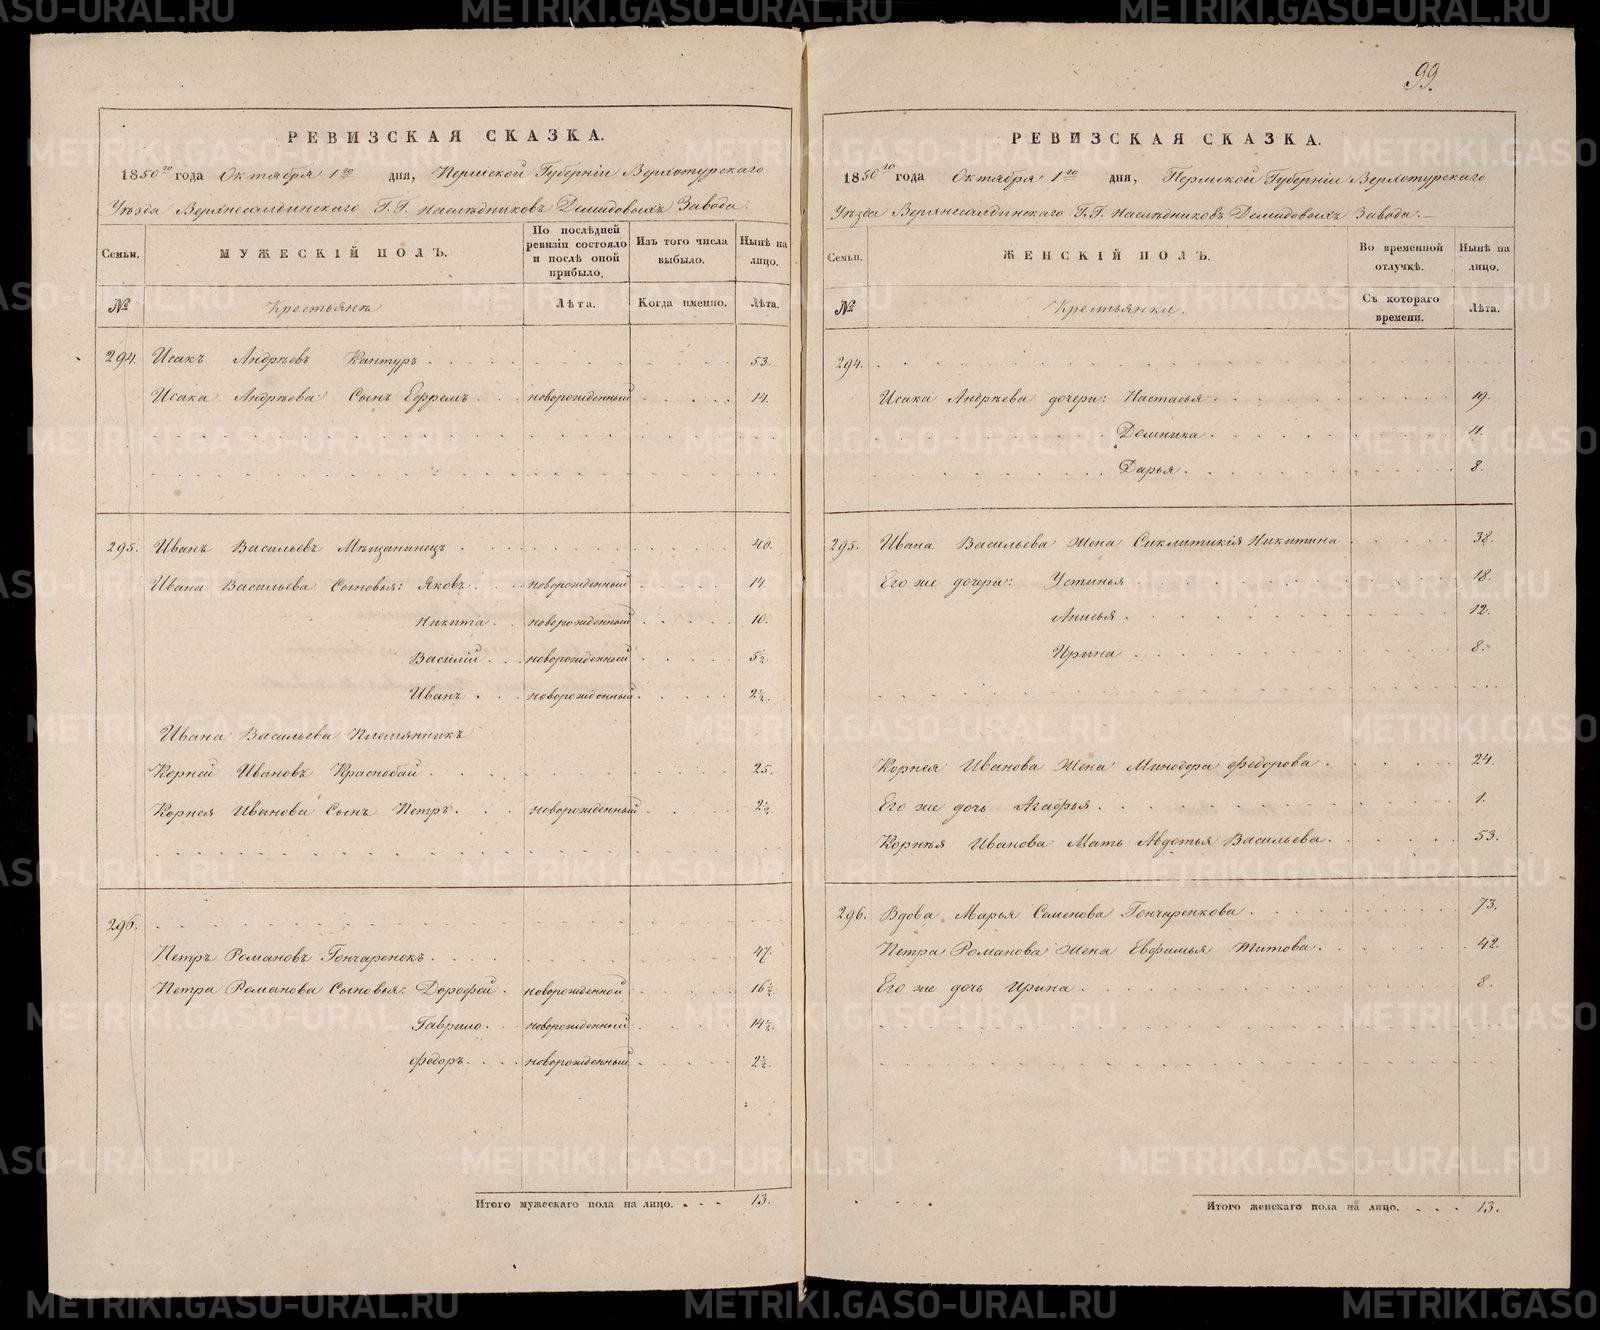 99.
РЕВИЗСКАЯ СКАЗКА.
1850го года Октября 1го дня, Пермской Губерніи Верхотурскаго
Уѣзда Верхнесалдинскаго Г.Г. наслѣдниковъ Демидовыхъ Завода.
Семьи.
МУЖЕСКІЙ ПОЛЪ.
По послѣдней ревизіи состояло и послѣ оной прибыло.
Изъ того числа выбыло.
Нынѣ на лицо.
№
Крестьянъ
Лѣта.
Когда именно.
Лѣта.
294. Исакъ Андрѣевъ Кантуръ 53.
Исака Андрѣева Сынъ Ефремъ новорожденный 14.
295. Иванъ Васильевъ Мѣщанинецъ 40.
Ивана Васильева Сыновья: Яковъ новорожденный 14.
Никита новорожденный 10.
Василій новорожденный 5½.
Иванъ новорожденный 2½.
Ивана Васильева Племянникъ
Корней Ивановъ Краснобай 25.
Корнея Иванова Сынъ Петръ новорожденный 2½.
296.
Петръ Романовъ Гончаренокъ 47.
Петра Романова Сыновья: Дорофей новорожденной 16½.
Гаврило новорожденный 14½.
Федоръ новорожденный 2½.
Итого мужескаго пола на лицо. 13.
РЕВИЗСКАЯ СКАЗКА.
1850го года Октября 1го дня, Пермской Губерніи Верхотурскаго
Уѣзда Верхнесалдинскаго Г.Г. наслѣдниковъ Демидовыхъ Завода.
Семьи.
ЖЕНСКІЙ ПОЛЪ.
Во временной отлучкѣ.
Нынѣ на лицо.
№
Крестьянки.
Съ котораго времени.
Лѣта.
294.
Исака Андрѣева дочери: Настасья 19.
Домника 11.
Дарья 8.
295. Ивана Васильева Жена Сиклитикія Никитина 38.
Его же дочери: Устинья 18.
Анисья 12.
Ирина 8.
Корнея Иванова Жена Минодора Федорова 24.
Его же дочь Агафья 1.
Корнѣя Иванова Мать Авдотья Васильева 53.
296. Вдова Марья Семенова Гончаренкова 73.
Петра Романова Жена Евфимья Титова 42.
Его же дочь Ирина 8.
Итого женскаго пола на лицо. 13.
METRIKI.GASO-URAL.RU